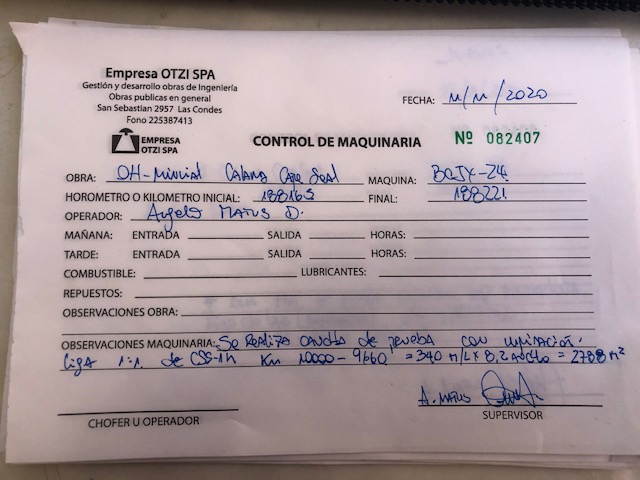 Empresa OTZI SPA
Gestión y desarrollo obras de Ingeniería
Obras publicas en general
San Sebastian 2957 - Las Condes
Fono 225387413
FECHA: 11/11/2020
EMPRESA
OTZI SPA
CONTROL DE MAQUINARIA Nº 082407
OBRA: Calama MAQUINA:
HOROMETRO O KILOMETRO INICIAL: 188163 FINAL: 188221
OPERADOR: Angelo Matus D.
MAÑANA: ENTRADA SALIDA HORAS:
TARDE: ENTRADA SALIDA HORAS:
COMBUSTIBLE: LUBRICANTES:
REPUESTOS:
OBSERVACIONES OBRA:
OBSERVACIONES MAQUINARIA: Se Realiza cancha de prueba con imprimación,
liga de Km 10000 - 9660 = 340 ML x 8,2 ancho = 2788 m²
A. Matus
CHOFER U OPERADOR SUPERVISOR